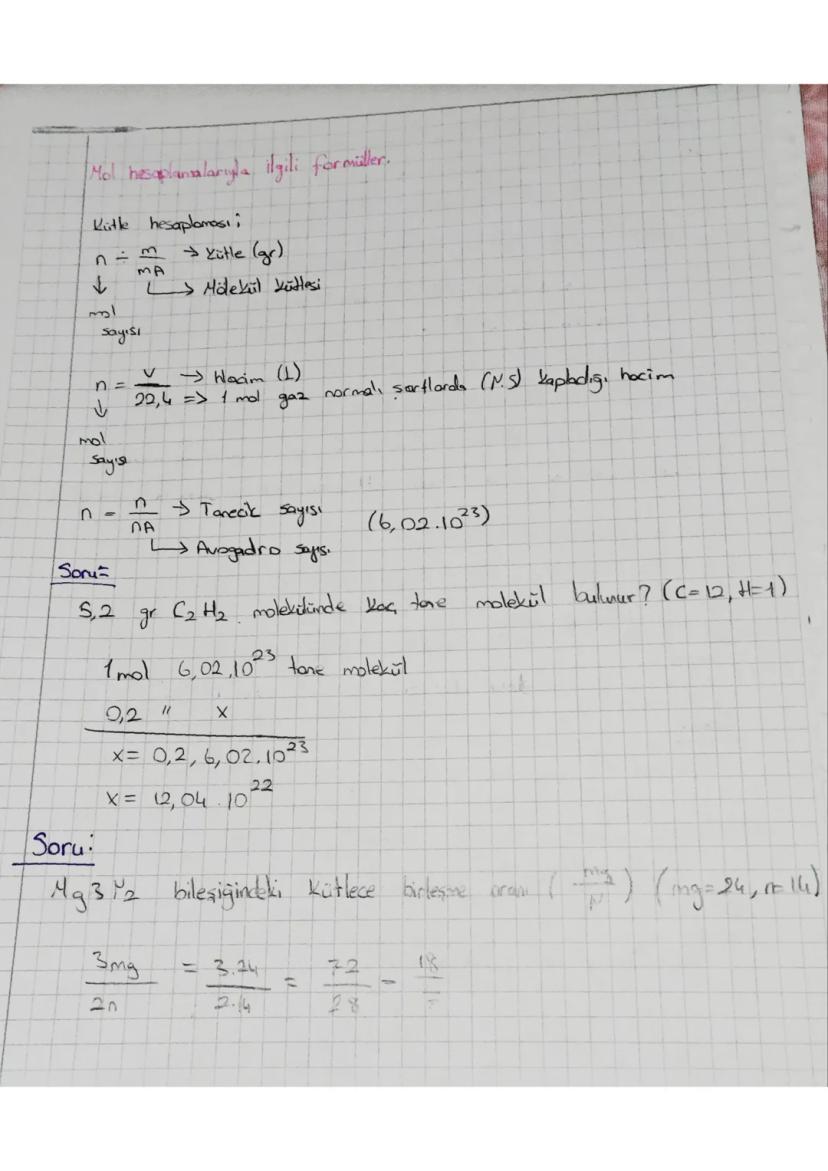 Mol hesaplamalarıyla ilgili formüller.
Kütle hesaplaması;
n = m/mA → Kütle (gr)
↓ → Molekül kütlesi
mol
sayısı
n = V/22,4 → Hacim (L)
↓ => 1 mol gaz normal şartlarda (N.S) kapladığı hacim
mol
sayısı
n = n/nA → Tanecik sayısı (6,02.10²³)
→ Avogadro sayısı
Soru=
5,2 gr C₂H₂ molekülünde kaç tane molekül bulunur? (C=12, H=1)
1 mol 6,02.10²³ tane molekül
0,2 " x
x= 0,2, 6,02.10²³
x= 12,04 .10²²
Soru:
Mg3N2 bileşiğindeki kütlece birleşme oranı (mg/N) (mg=24, n=14)
3mg/2n = 3.24/2.14 = 72/28 - 18/